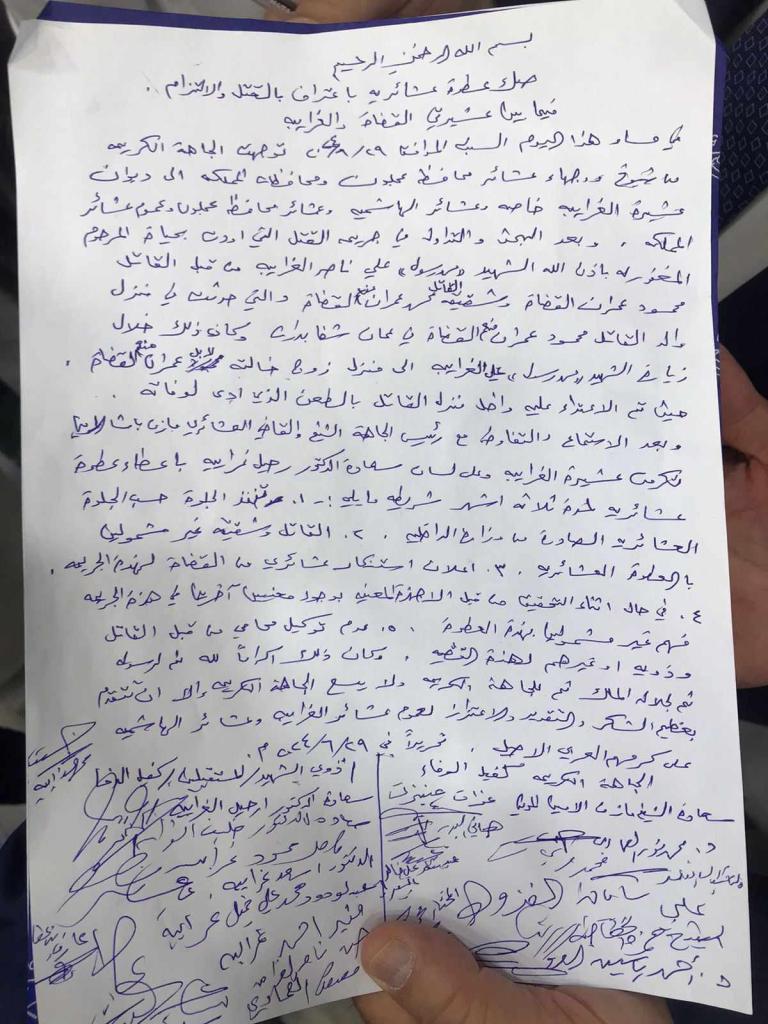 بسم الله الرحمن الرحيم
صك عطوة عشائريه باعتراف بالقتل والالتزام .
فيما بين عشيرتي القضاة والغرايبه
في مساء هذا اليوم السبت الموافق ٢٩/٦/٢٠٢٤ توجهت الجاهة الكريمه
من شيوخ ووجهاء عشائر محافظة عجلون ومحافظات المملكه الى ديوان
عشيرة الغرايبه خاصه وعشائر الهاشميه وعشائر محافظة عجلون وعموم عشائر
المملكه . وبعد البحث والتداول في جريمه القتل التي اودت بحياة المرحوم
المغفور له باذن الله الشهيد علي ناصر الغرايبه من قبل القاتل
محمود عمران القضاة وشقيقه القاتل محمد عمران مفلح القضاة والتي حدثت في منزل
والد القاتل محمود عمران مفلح القضاة في عمان شفا بدران وكان ذلك خلال
زيارة الشهيد علي الغرايبه الى منزل زوج خالته عمران مفلح القضاة .
حيث تم الاعتداء عليه داخل منزل القاتل بالطعن الذي ادى لوفاته .
وبعد الاستماع والتفاوض مع رئيس الجاهة الشيخ والقاضي العشائري مازن باشا
تكرمت عشيرة الغرايبه وعلى لسان سعادة الدكتور رحيل غرايبه باعطاء عطوة
عشائريه لمدة ثلاثة اشهر شريطه مايليه :- ١. تنفذ الجلوة حسب الجلوة
العشائريه الصادرة من وزارة الداخليه . ٢. القاتل وشقيقه غير مشمولين
بالعطوة العشائريه . ٣. اعلان استنكار عشائري من القضاة لهذه الجريمه .
٤. في حال اثناء التحقيق من قبل الاجهزة المعنيه بوجود معنيين آخرين في هذه الجريمه
فهم غير مشمولين بهذه العطوة . ٥. عدم توكيل محامي من قبل القاتل
وذويه او غيرهم لهذه القضيه . وكان ذلك اكراماً لله ثم لرسوله
ثم لجلالة الملك ثم للجاهة الكريمه ولا يسع الجاهة الكريمه والا ان تتقدم
بعظيم الشكر والتقدير والاعتزاز لعموم عشائر الغرايبه وعشائر الهاشميه
على كرمهم العربي الاصيل . تحريراً في ٢٩/٦/٢٠٢٤ م .
الجاهة الكريمه كفيل الوفاء
سعادة الشيخ مازن
ذوي الشهيد/
سعادة الدكتور ارحيل الغرايبه
سعادة الدكتور
الدكتور اسعد غرايبه
علي سلمان
د. احمد ياسين